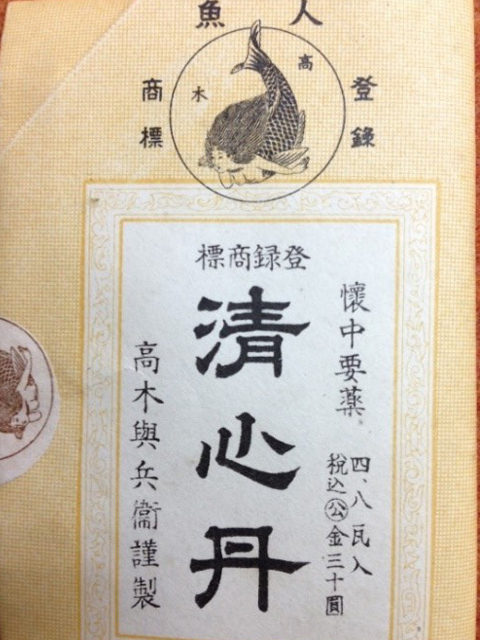 人魚
高木
登錄
商標
登録商標
懷中要薬
四、八瓦入
税込公金三十圓
清心丹
高木與兵衞謹製